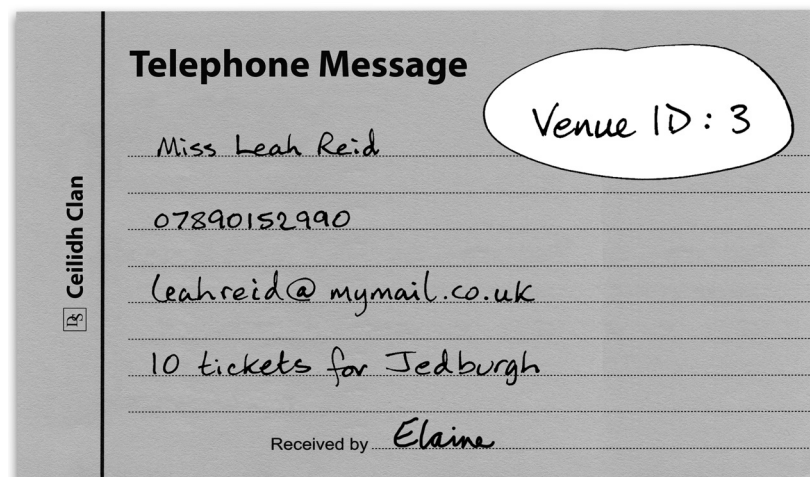 Telephone Message
Venue ID: 3
Miss Leah Reid
07890152990
leahreid@mymail.co.uk
10 tickets for Jedburgh
Received by Elaine
Ceilidh Clan